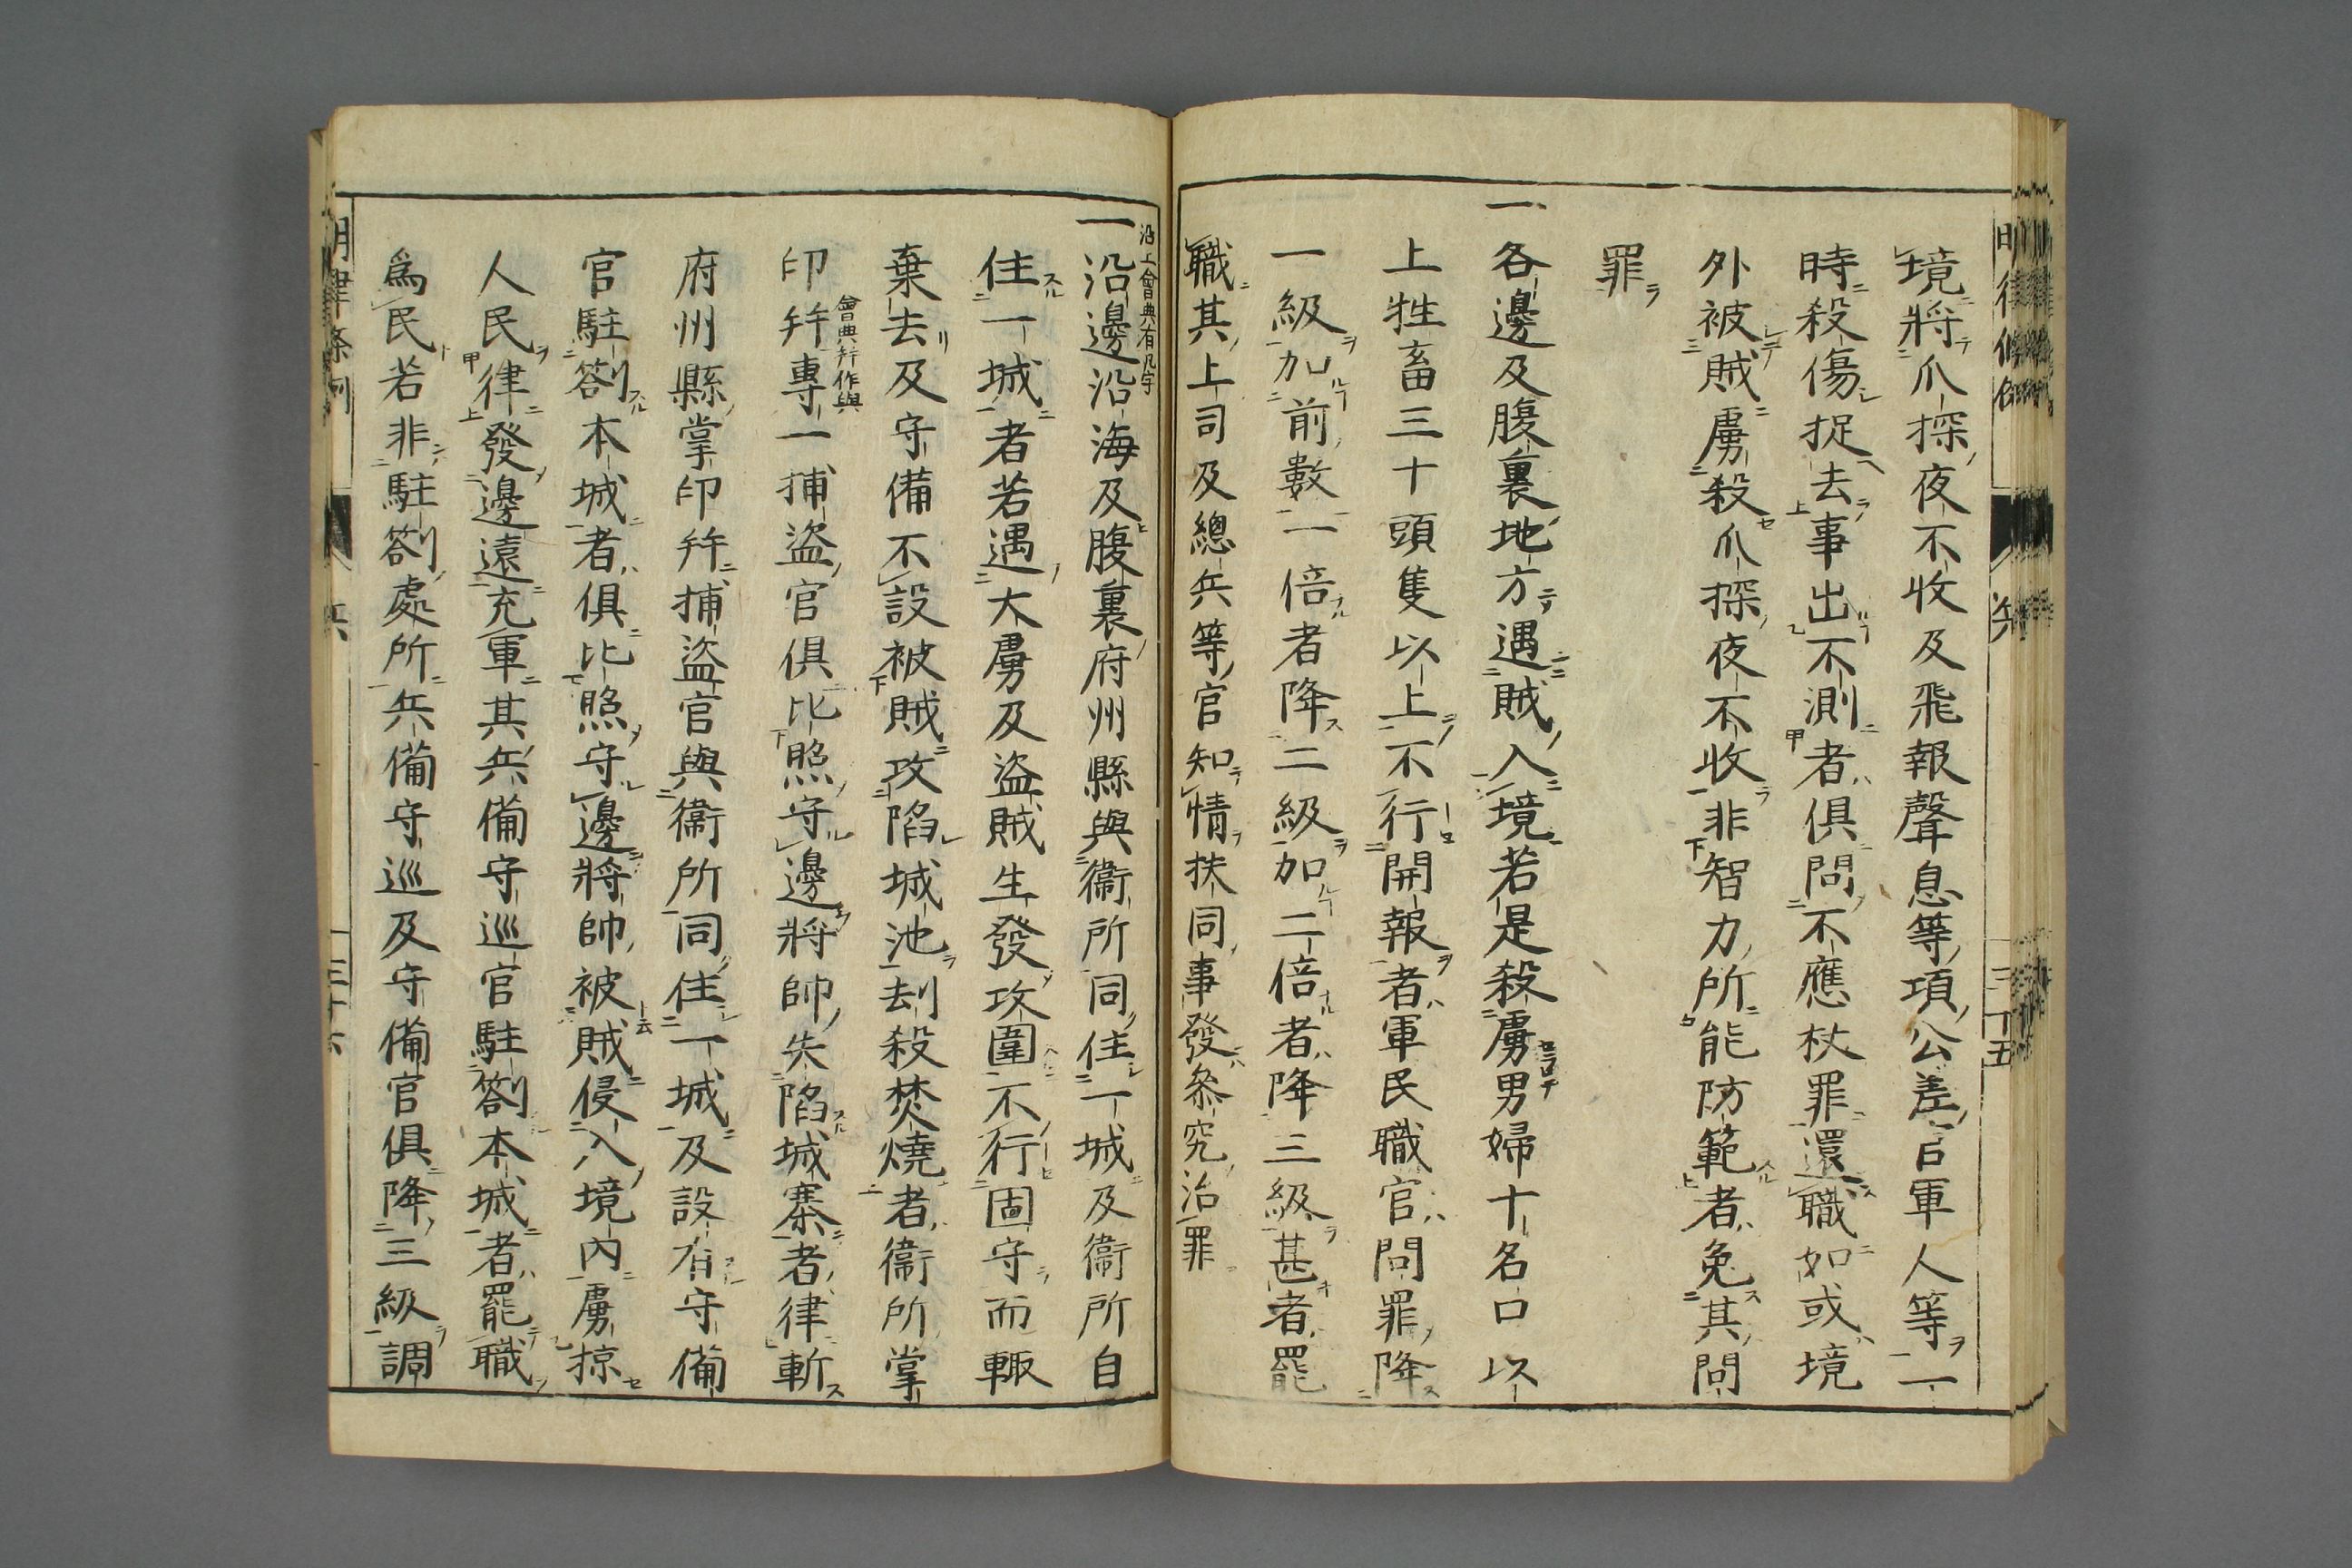 境將爪探夜不收及飛報聲息等項公差官軍人等一
時殺傷捉去事出不測者俱問不應杖罪還職如或境
外被賊虜殺爪探夜不收非智力所能防範者免其問
罪
一各邊及腹裏地方遇賊入境若是殺虜男婦十名口以
上牲畜三十頭隻以上不行開報者軍民職官問罪降
一級加前數一倍者降二級加二倍者降三級甚者罷
職其上司及總兵等官知情扶同事發叅究治罪
沿上會典有凡字
一沿邊沿海及腹裏府州縣與衞所同住一城及衞所自
住一城者若遇大虜及盜賊生發攻圍不行固守而輙
棄去及守備不設被賊攻陷城池刦殺焚燒者衞所掌
印幷專一捕盜官俱比照守邊將帥失陷城寨者律斬
會典幷作與
府州縣掌印幷捕盜官與衞所同住一城及設有守備
官駐劄本城者俱比照守邊將帥被賊侵入境內虜掠
人民律發邊遠充軍其兵備守巡官駐劄本城者罷職
爲民若非駐劄處所兵備守巡及守備官俱降三級調
明律條例 兵 三十六